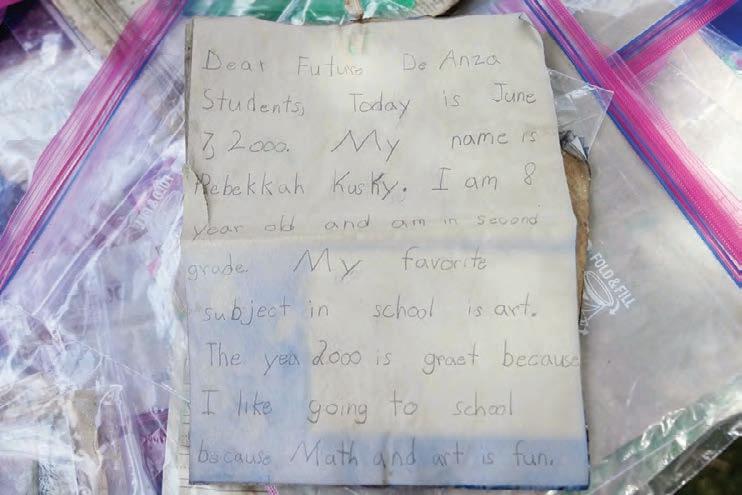 Dear Future De Anza
Students, Today is June
7, 2000. My name is
Rebekkah Kusky. I am 8
year old and am in second
grade. My favorite
subject in school is art.
The yea 2000 is graet because
I like going to school
because Math and art is fun.
FOLD & FILL